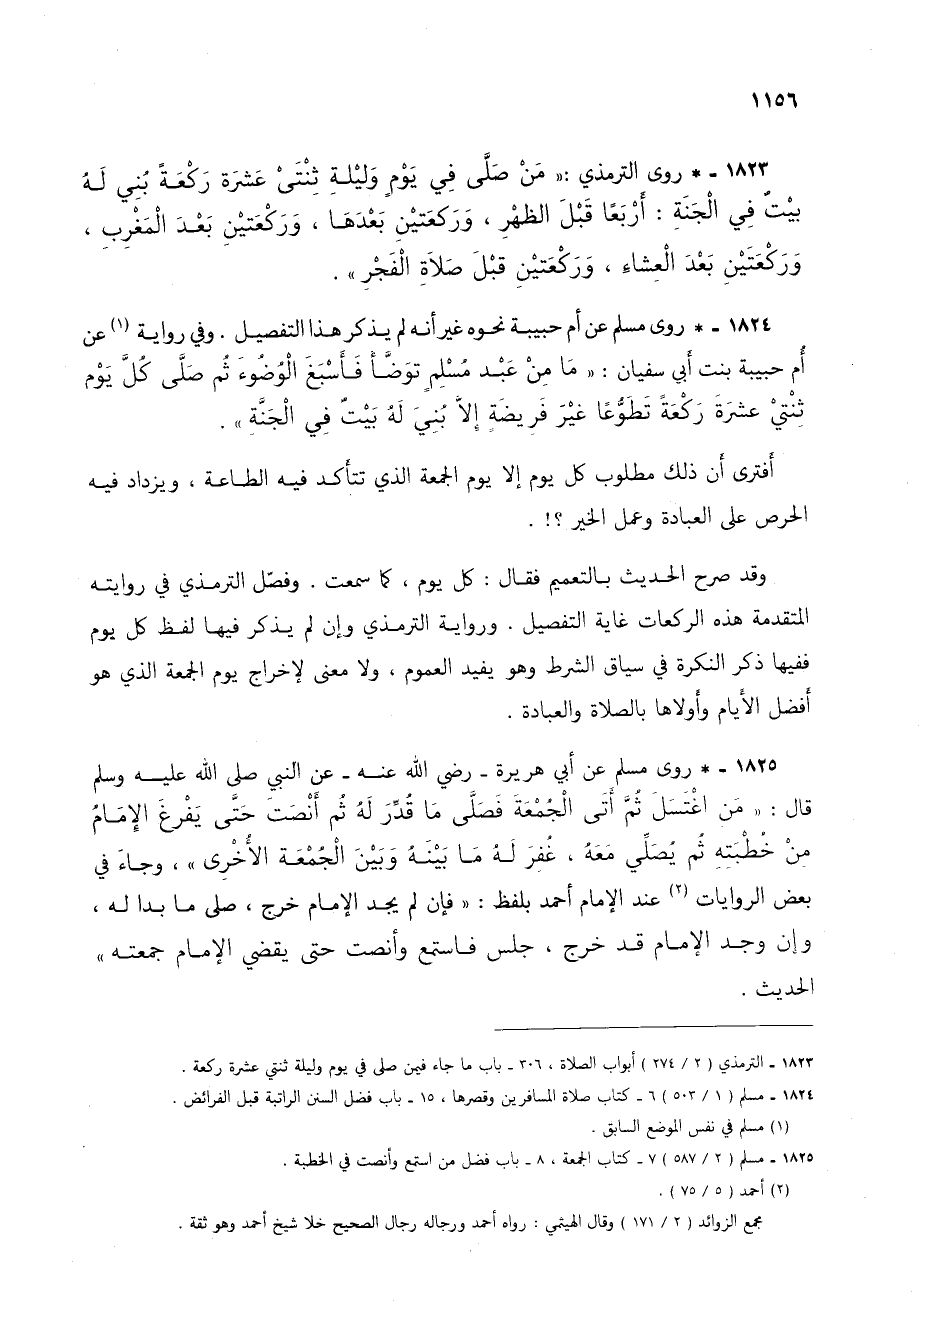 ١١٥٦
١٨٢٣ - * روى الترمذي : « مَنْ صَلَّى فِي يَوْمٍ وَلَيْلَةٍ ثِنْتَيْ عَشْرَةَ رَكْعَةً بُنِي لَهُ
بَيْتٌ فِي الْجَنَةِ : أَرْبَعًا قَبْلَ الظهْرِ ، وَرَكعَتَيْنِ بَعْدَهَا ، وَرَكْعَتَيْنِ بَعْدَ الْمَغْرِبِ ،
وَرَكْعَتَيْنِ بَعْدَ الْعِشاءِ ، وَرَكْعَتَيْنِ قبْلَ صَلَاةِ الْفَجْرِ » .
١٨٢٤ - * روى مسلم عن أم حبيبة نحوه غير أنه لم يذكر هذا التفصيل . وفي رواية (١) عن
أم حبيبة بنت أبي سفيان : « مَا مِنْ عَبْدٍ مُسْلِمٍ توَضَّأَ فَأَسْبَغَ الْوُضُوءَ ثُم صَلَّى كُلَّ يَوْمٍ
ثِنْتِيْ عشْرَةَ رَكْعَةً تَطَوُّعًا غَيْرَ فَرِيضَةٍ إِلاَّ بُنِيَ لَهُ بَيْتٌ فِي الْجَنَّةِ » .
أفترى أن ذلك مطلوب كل يوم إلا يوم الجمعة الذي تتأكد فيه الطاعة ، ويزداد فيه
الحرص على العبادة وعمل الخير ؟! .
وقد صرح الحديث بالتعميم فقال : كل يوم ، كما سمعت . وفصّل الترمذي في روايته
المتقدمة هذه الركعات غاية التفصيل . ورواية الترمذي وإن لم يذكر فيها لفظ كل يوم
ففيها ذكر النكرة في سياق الشرط وهو يفيد العموم ، ولا معنى لإخراج يوم الجمعة الذي هو
أفضل الأيام وأولاها بالصلاة والعبادة .
١٨٢٥ - * روى مسلم عن أبي هريرة - رضي الله عنه - عن النبي صلى الله عليه وسلم
قال : « مَن اغْتَسَلَ ثُمَّ أَتَى الْجُمْعَةَ فَصَلَّى مَا قُدِّرَ لَهُ ثُم أَنْصَتَ حَتَّى يَفْرغَ الإِمَامُ
مِنْ خُطْبَتِهِ ثُم يُصَلِّي مَعَهُ ، غُفِرَ لَهُ مَا بَيْنَهُ وَبَيْنَ الْجُمْعَةِ الأُخْرى » ، وجاءَ في
بعض الروايات (٢) عند الإمام أحمد بلفظ : « فإن لم يجد الإمام خرج ، صلى ما بدا له ،
وإن وجد الإمام قد خرج ، جلس فاستمع وأنصت حتى يقضي الإمام جمعته »
الحديث .
١٨٢٣ - الترمذي ( ٢ / ٢٧٤ ) أبواب الصلاة ، ٣٠٦ - باب ما جاء فيمن صلى في يوم وليلة ثنتي عشرة ركعة .
١٨٢٤ - مسلم ( ١ / ٥٠٣ ) ٦ - كتاب صلاة المسافرين وقصرها ، ١٥ - باب فضل السنن الراتبة قبل الفرائض .
(١) مسلم في نفس الموضع السابق .
١٨٢٥ - مسلم ( ٢ / ٥٨٧ ) ٧ - كتاب الجمعة ، ٨ - باب فضل من استمع وأنصت في الخطبة .
(٢) أحمد ( ٥ / ٧٥ ) .
مجمع الزوائد ( ٢ / ١٧١ ) وقال الهيثمي : رواه أحمد ورجاله رجال الصحيح خلا شيخ أحمد وهو ثقة .